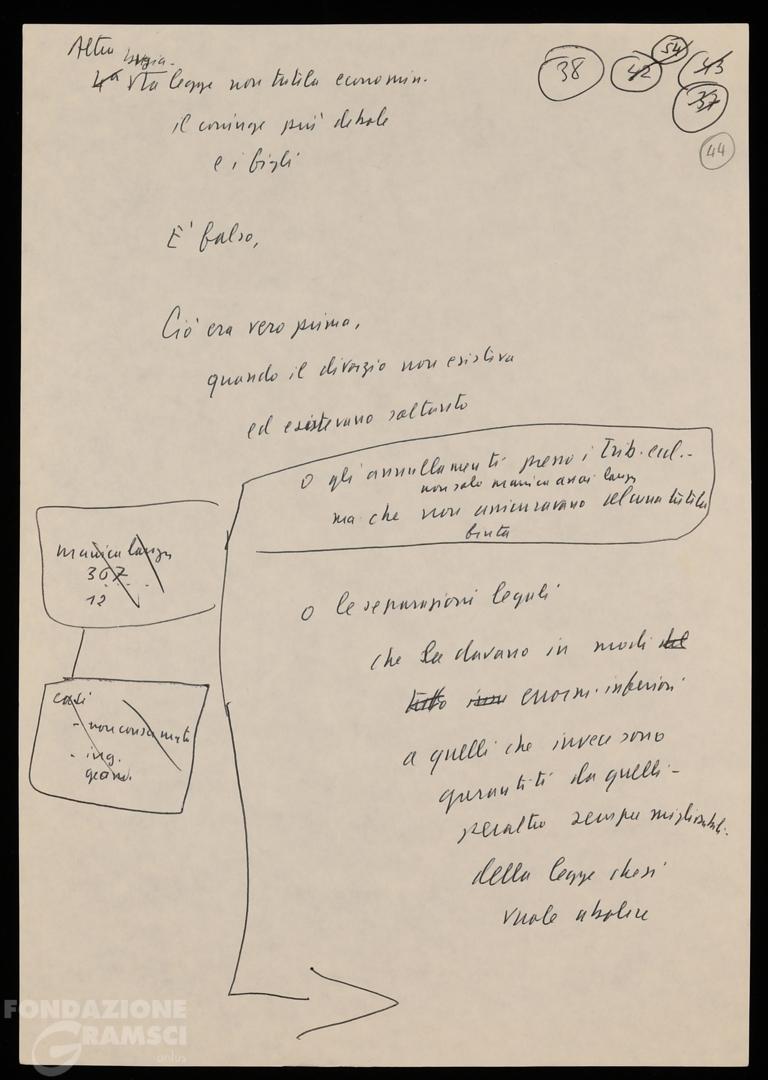 Altra bugia.
4ª sta legge non tutela economin.
il coniuge più debole
e i figli
38
42
54
43
37
44
E' falso,
Ciò era vero prima,
quando il divorzio non esisteva
ed esistevano soltanto
o gli annullamenti presso i Trib. eccl.-
non solo manica assai larga
ma che non assicuravano alcuna tutela
finta
manica larga
367
12
casi
- non consumato
- ing.
grand.
o le separazioni legali
che la davano in modi del
tutto enorm. inferiori
a quelli che invece sono
garantiti da quelli -
peraltro sempre migliorabili -
della legge che si
vuole abolire
FONDAZIONE
GRAMSCI
onlus